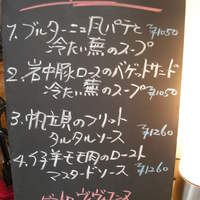 1. ブルターニュ風パテと
冷たい蕪のスープ ¥1050
2. 岩中豚ロースのバゲットサンド
冷たい蕪のスープ ¥1050
3. 帆立貝のフリット
タルタルソース ¥1260
4. 仔羊モモ肉のロースト
マスタードソース ¥1260